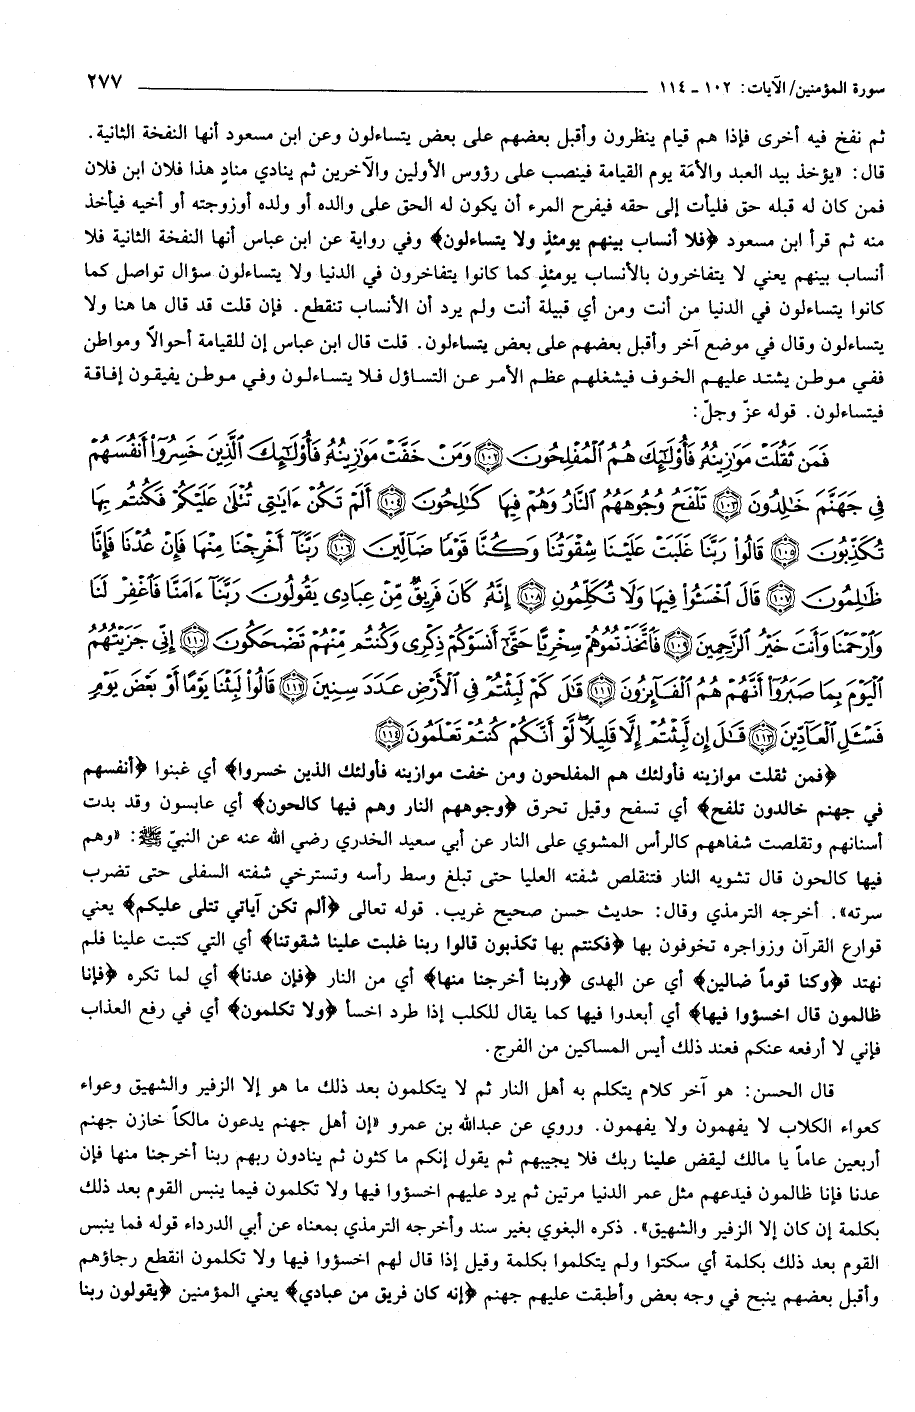 سورة المؤمنين/ الآيات: ١٠٢ ـ ١١٤ ٢٧٧
ثم نفخ فيه أخرى فإذا هم قيام ينظرون وأقبل بعضهم على بعض يتساءلون وعن ابن مسعود أنها النفخة الثانية.
قال: «يؤخذ بيد العبد والأمة يوم القيامة فينصب على رؤوس الأولين والآخرين ثم ينادي منادٍ هذا فلان ابن فلان
فمن كان له قبله حق فليأت إلى حقه فيفرح المرء أن يكون له الحق على والده أو ولده أوزوجته أو أخيه فيأخذ
منه ثم قرأ ابن مسعود ﴿فلا أنساب بينهم يومئذٍ ولا يتساءلون﴾ وفي رواية عن ابن عباس أنها النفخة الثانية فلا
أنساب بينهم يعني لا يتفاخرون بالأنساب يومئذٍ كما كانوا يتفاخرون في الدنيا ولا يتساءلون سؤال تواصل كما
كانوا يتساءلون في الدنيا من أنت ومن أي قبيلة أنت ولم يرد أن الأنساب تنقطع. فإن قلت قد قال ها هنا ولا
يتساءلون وقال في موضع آخر وأقبل بعضهم على بعض يتساءلون. قلت قال ابن عباس إن للقيامة أحوالاً ومواطن
ففي موطن يشتد عليهم الخوف فيشغلهم عظم الأمر عن التساؤل فلا يتساءلون وفي موطن يفيقون إفاقة
فيتساءلون. قوله عزّ وجلّ:
فَمَن ثَقُلَتْ مَوَٰزِينُهُۥ فَأُو۟لَٰٓئِكَ هُمُ ٱلْمُفْلِحُونَ ۝١٠٢ وَمَنْ خَفَّتْ مَوَٰزِينُهُۥ فَأُو۟لَٰٓئِكَ ٱلَّذِينَ خَسِرُوٓا۟ أَنفُسَهُمْ
فِى جَهَنَّمَ خَٰلِدُونَ ۝١٠٣ تَلْفَحُ وُجُوهَهُمُ ٱلنَّارُ وَهُمْ فِيهَا كَٰلِحُونَ ۝١٠٤ أَلَمْ تَكُنْ ءَايَٰتِى تُتْلَىٰ عَلَيْكُمْ فَكُنتُم بِهَا
تُكَذِّبُونَ ۝١٠٥ قَالُوا۟ رَبَّنَا غَلَبَتْ عَلَيْنَا شِقْوَتُنَا وَكُنَّا قَوْمًا ضَآلِّينَ ۝١٠٦ رَبَّنَآ أَخْرِجْنَا مِنْهَا فَإِنْ عُدْنَا فَإِنَّا
ظَٰلِمُونَ ۝١٠٧ قَالَ ٱخْسَـُٔوا۟ فِيهَا وَلَا تُكَلِّمُونِ ۝١٠٨ إِنَّهُۥ كَانَ فَرِيقٌ مِّنْ عِبَادِى يَقُولُونَ رَبَّنَآ ءَامَنَّا فَٱغْفِرْ لَنَا
وَٱرْحَمْنَا وَأَنتَ خَيْرُ ٱلرَّٰحِمِينَ ۝١٠٩ فَٱتَّخَذْتُمُوهُمْ سِخْرِيًّا حَتَّىٰٓ أَنسَوْكُمْ ذِكْرِى وَكُنتُم مِّنْهُمْ تَضْحَكُونَ ۝١١٠ إِنِّى جَزَيْتُهُمُ
ٱلْيَوْمَ بِمَا صَبَرُوٓا۟ أَنَّهُمْ هُمُ ٱلْفَآئِزُونَ ۝١١١ قَٰلَ كَمْ لَبِثْتُمْ فِى ٱلْأَرْضِ عَدَدَ سِنِينَ ۝١١٢ قَالُوا۟ لَبِثْنَا يَوْمًا أَوْ بَعْضَ يَوْمٍ
فَسْـَٔلِ ٱلْعَآدِّينَ ۝١١٣ قَٰلَ إِن لَّبِثْتُمْ إِلَّا قَلِيلًا ۖ لَّوْ أَنَّكُمْ كُنتُمْ تَعْلَمُونَ ۝١١٤
﴿فمن ثقلت موازينه فأولئك هم المفلحون ومن خفت موازينه فأولئك الذين خسروا﴾ أي غبنوا ﴿أنفسهم
في جهنم خالدون تلفح﴾ أي تسفح وقيل تحرق ﴿وجوههم النار وهم فيها كالحون﴾ أي عابسون وقد بدت
أسنانهم وتقلصت شفاههم كالرأس المشوي على النار عن أبي سعيد الخدري رضي الله عنه عن النبيّ ﷺ: «وهم
فيها كالحون قال تشويه النار فتتقلص شفته العليا حتى تبلغ وسط رأسه وتسترخي شفته السفلى حتى تضرب
سرته». أخرجه الترمذي وقال: حديث حسن صحيح غريب. قوله تعالى ﴿ألم تكن آياتي تتلى عليكم﴾ يعني
قوارع القرآن وزواجره تخوفون بها ﴿فكنتم بها تكذبون قالوا ربنا غلبت علينا شقوتنا﴾ أي التي كتبت علينا فلم
نهتد ﴿وكنا قوماً ضالين﴾ أي عن الهدى ﴿ربنا أخرجنا منها﴾ أي من النار ﴿فإن عدنا﴾ أي لما تكره ﴿فإنا
ظالمون قال اخسؤوا فيها﴾ أي أبعدوا فيها كما يقال للكلب إذا طرد اخسأ ﴿ولا تكلمون﴾ أي في رفع العذاب
فإني لا أرفعه عنكم فعند ذلك أيس المساكين من الفرج.
قال الحسن: هو آخر كلام يتكلم به أهل النار ثم لا يتكلمون بعد ذلك ما هو إلا الزفير والشهيق وعواء
كعواء الكلاب لا يفهمون ولا يفهمون. وروي عن عبدالله بن عمرو «إن أهل جهنم يدعون مالكاً خازن جهنم
أربعين عاماً يا مالك ليقض علينا ربك فلا يجيبهم ثم يقول إنكم ما كثون ثم ينادون ربهم ربنا أخرجنا منها فإن
عدنا فإنا ظالمون فيدعهم مثل عمر الدنيا مرتين ثم يرد عليهم اخسؤوا فيها ولا تكلمون فيما ينبس القوم بعد ذلك
بكلمة إن كان إلا الزفير والشهيق». ذكره البغوي بغير سند وأخرجه الترمذي بمعناه عن أبي الدرداء قوله فما ينبس
القوم بعد ذلك بكلمة أي سكتوا ولم يتكلموا بكلمة وقيل إذا قال لهم اخسؤوا فيها ولا تكلمون انقطع رجاؤهم
وأقبل بعضهم ينبح في وجه بعض وأطبقت عليهم جهنم ﴿إنه كان فريق من عبادي﴾ يعني المؤمنين ﴿يقولون ربنا